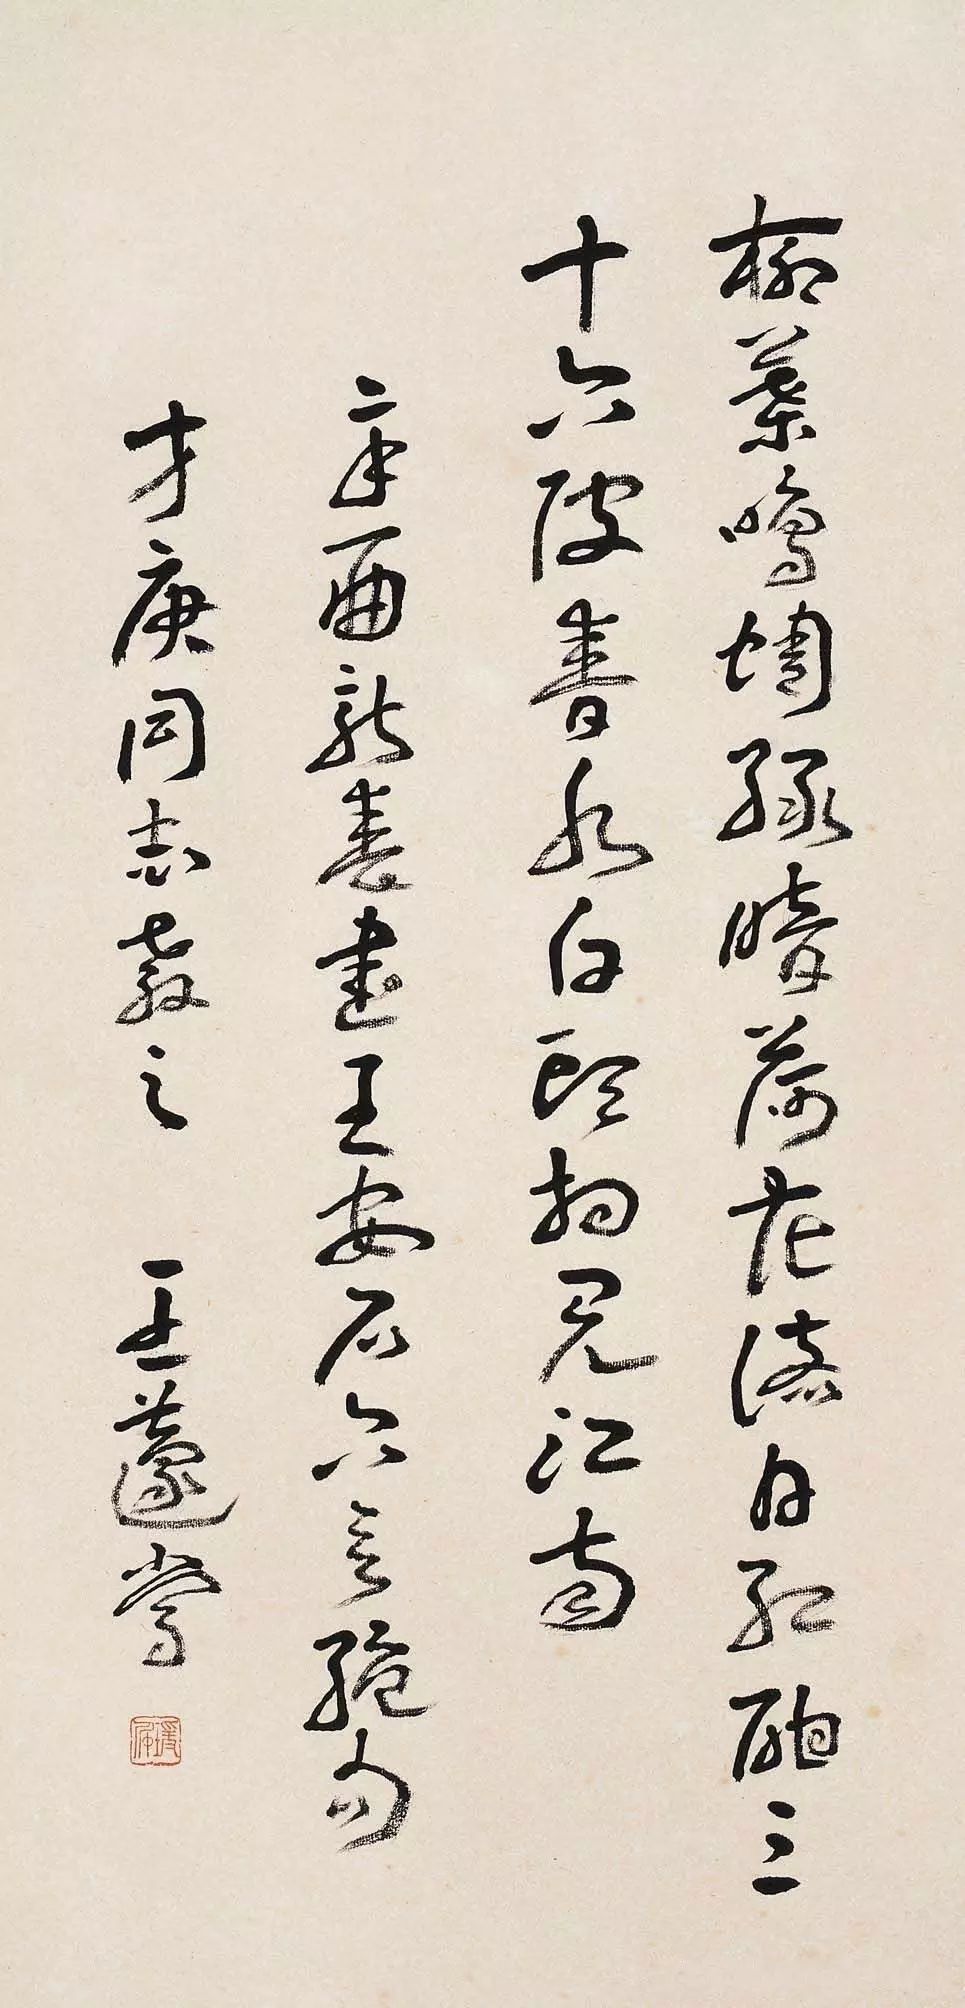 柳葉鳴蜩綠暗荷花落日紅酣三
十六陂春水白頭想見江南
辛酉新春書王安石六言絕句
才庚同志教之 王蘧常